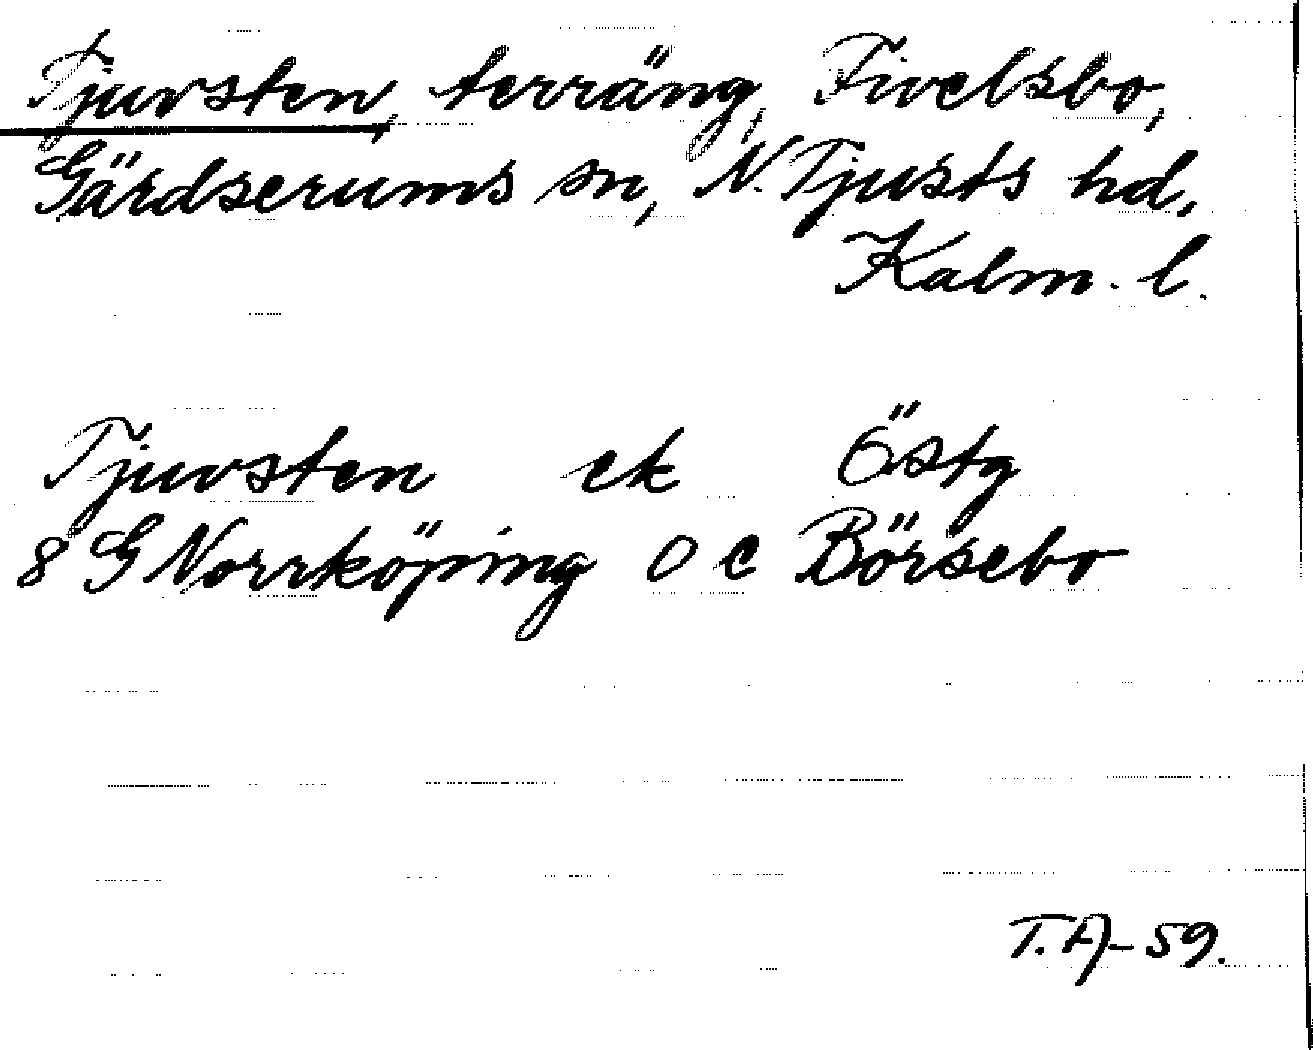 Tjuvsten, terräng, Fivelsbo,
Gärdserums sn, N. Tjusts hd,
Kalm. l.
Tjuvsten ek Östg
8 G Norrköping 0 c Börsebo
T.A-59.